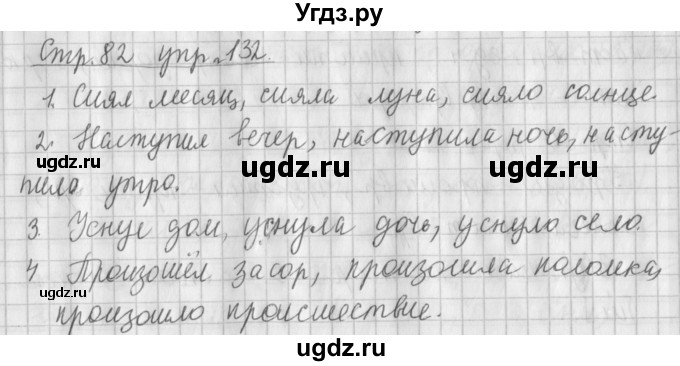 Угдз.ру
Стр. 82 упр. 132.
1. Сиял месяц, сияла луна, сияло солнце.
2. Наступил вечер, наступила ночь, насту-
ugdz.ru ugdz.ru ugdz.ru
пило утро.
ugdz.ru
3. Уснул дом, уснула дочь, уснуло село.
4 Произошёл засор, произошла поломка,
ugdz.ru ugdz.ru
произошло происшествие.
ugdz.ru